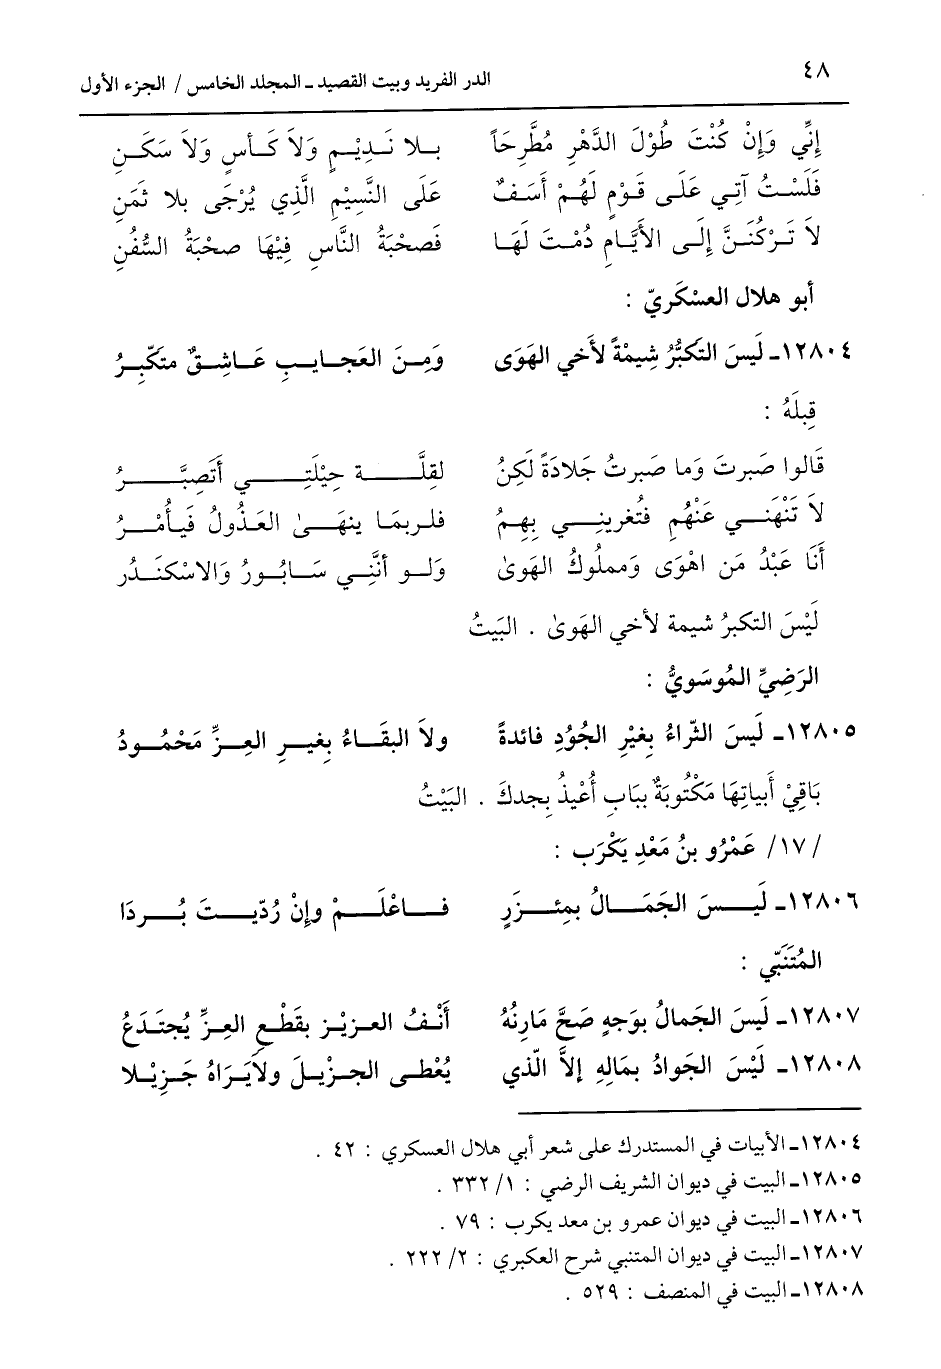 ٤٨
الدر الفريد وبيت القصيد ـ المجلد الخامس / الجزء الأول
إنِّي وَإنْ كُنْتَ طُوْلَ الدَّهْرِ مُطَّرِحَاً بـلا نَـدِيْـمٍ وَلاَ كَـأسٍ وَلاَ سَكَـنِ
فَلَسْـتُ آتِـي عَلَـى قَـوْمٍ لَهُـمْ أسَـفٌ عَلَى النَّسِيْمِ الَّذِي يُرْجَى بلا ثَمَنِ
لاَ تَـرْكُنَـنَّ إلَـى الأيَّـامِ دُمْـتَ لَهَـا فَصحْبَةُ النَّاسِ فِيْهَا صحْبَةُ السُّفُنِ
أبو هلال العسْكَريّ :
١٢٨٠٤ـ لَيسَ التكبُّرُ شِيمْةً لأخي الهَوَى وَمِـنَ العَجـايـبِ عَـاشِـقٌ متكّبِـرُ
قِبلَهُ :
قَالوا صَبرتَ وَما صَبرتُ جَلادَةً لَكِنُ لقِلَّـــــةِ حِيْلَتِـــــي أتَصِبَّـــــرُ
لاَ تَنْهَنـي عَنْهُم فتُغرينـي بِهِـمُ فلـربمَـا ينهَـىٰ العَـذُولُ فَيـأمُـرُ
أنَا عَبْدُ مَن اهْوَى وَمملُوكُ الهَوىٰ وَلـو أنَّنِـي سَـابُـورُ وَالاسْكنَـدر
لَيْسَ التكبرُ شيمة لأخي الهَوىٰ . البَيتُ
الرَضِيِّ المُوسَويُّ :
١٢٨٠٥ـ لَيسَ الثّراءُ بِغيْرِ الجُوْدِ فائدةً ولاَ البقَـاءُ بِغيـرِ العِـزِّ مَحْمُـودُ
بَاقِيْ أبياتِهَا مَكْتُوبَةٌ بِبابِ أُعْيذُ بِجدكَ . البَيْتُ
/١٧/ عَمْرُو بنُ مَعْدِ يَكْرَب :
١٢٨٠٦ـ لَيـسَ الجَمَـالُ بمِئـزَرٍ فـاعْلَـمْ وإنْ رُدّيـتَ بُـردَا
المُتَنَبّي :
١٢٨٠٧ـ لَيسَ الجَمالُ بوَجهٍ صَحَّ مَارِنُهُ أنْفُ العزيْزِ بقَطْعِ العِزِّ يُجتَدَعُ
١٢٨٠٨ـ لَيْسَ الجَوادُ بمَالِهِ إلاَّ الّذي يُعْطى الجزيلَ ولاَيَرَاهُ جَزِيْلا
١٢٨٠٤ـ الأبيات في المستدرك على شعر أبي هلال العسكري : ٤٢ .
١٢٨٠٥ـ البيت في ديوان الشريف الرضي : ١/ ٣٣٢ .
١٢٨٠٦ـ البيت في ديوان عمرو بن معد يكرب : ٧٩ .
١٢٨٠٧ـ البيت في ديوان المتنبي شرح العكبري : ٢/ ٢٢٢ .
١٢٨٠٨ـ البيت في المنصف : ٥٢٩ .